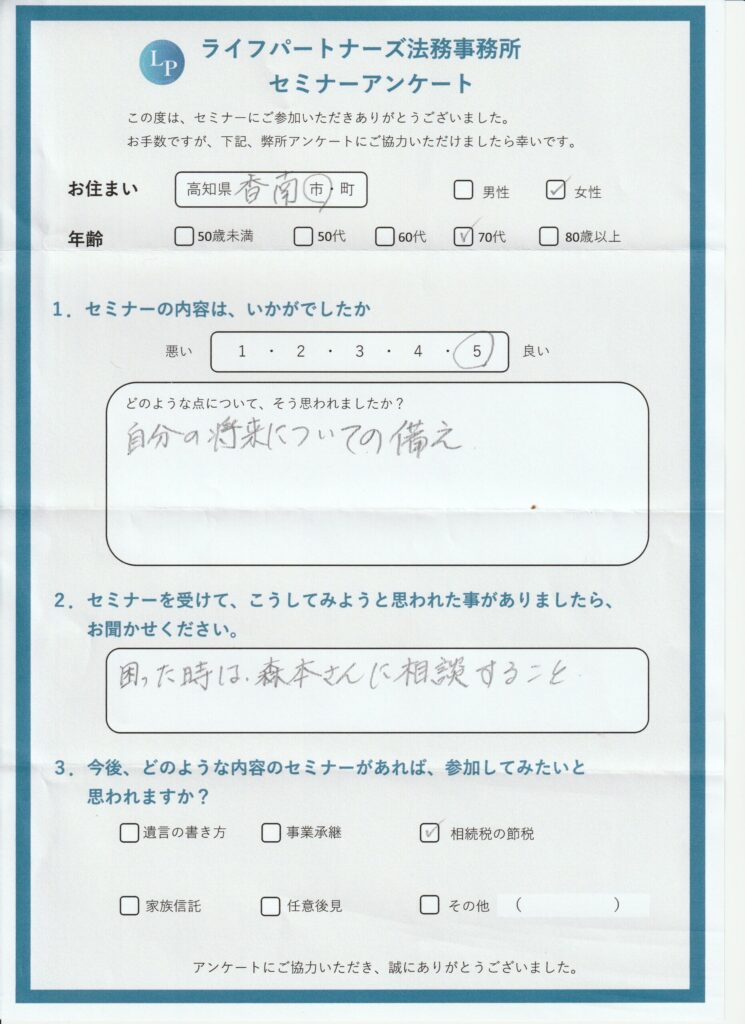 LP
ライフパートナーズ法務事務所
セミナーアンケート
この度は、セミナーにご参加いただきありがとうございました。
お手数ですが、下記、弊所アンケートにご協力いただけましたら幸いです。
お住まい 高知県 香南 市・町 □ 男性 ☑ 女性
年齢 □ 50歳未満 □ 50代 □ 60代 ☑ 70代 □ 80歳以上
1．セミナーの内容は、いかがでしたか
悪い 1 ・ 2 ・ 3 ・ 4 ・ 5 良い
どのような点について、そう思われましたか？
自分の将来についての備え
2．セミナーを受けて、こうしてみようと思われた事がありましたら、
お聞かせください。
困った時は、森本さんに相談すること
3．今後、どのような内容のセミナーがあれば、参加してみたいと
思われますか？
□ 遺言の書き方 □ 事業承継 ☑ 相続税の節税
□ 家族信託 □ 任意後見 □ その他 （ ）
アンケートにご協力いただき、誠にありがとうございました。